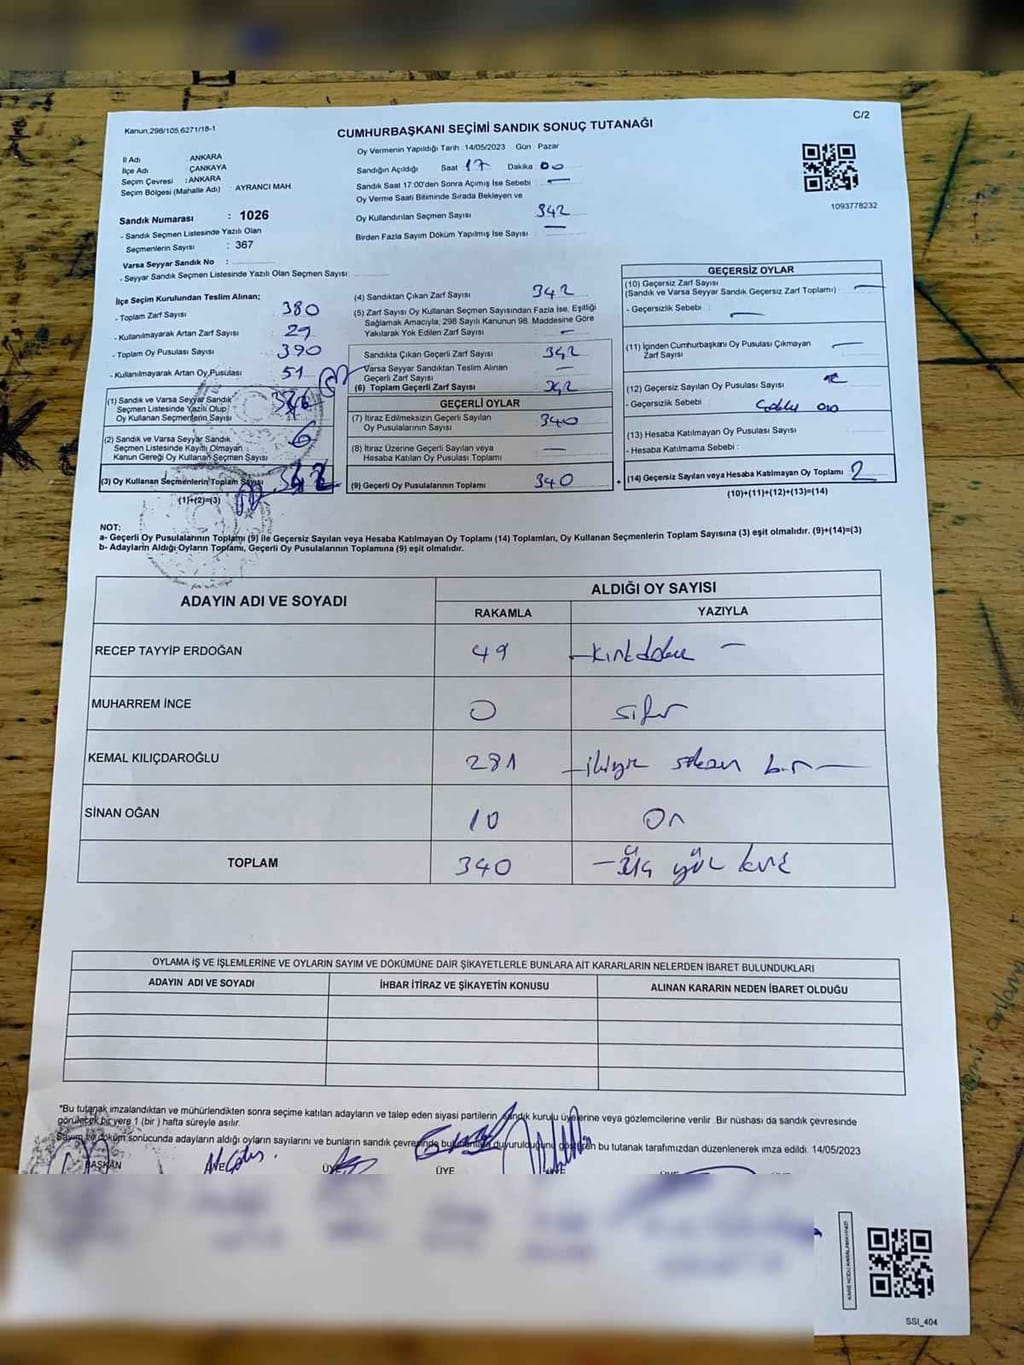 Kanun,298/105,6271/18-1
C/2
CUMHURBAŞKANI SEÇİMİ SANDIK SONUÇ TUTANAĞI
İl Adı : ANKARA
İlçe Adı : ÇANKAYA
Seçim Çevresi : ANKARA
Seçim Bölgesi (Mahalle Adı) : AYRANCI MAH.
Sandık Numarası : 1026
- Sandık Seçmen Listesinde Yazılı Olan
Seçmenlerin Sayısı : 367
Varsa Seyyar Sandık No :
- Seyyar Sandık Seçmen Listesinde Yazılı Olan Seçmen Sayısı:
Oy Vermenin Yapıldığı Tarih : 14/05/2023 Gün Pazar
Sandığın Açıldığı Saat 17 Dakika 00
Sandık Saat 17:00'den Sonra Açımış İse Sebebi —
Oy Verme Saati Bitiminde Sırada Bekleyen ve
Oy Kullandırılan Seçmen Sayısı 342
Birden Fazla Sayım Döküm Yapılmış İse Sayısı : —
1093778232
İlçe Seçim Kurulundan Teslim Alınan;
- Toplam Zarf Sayısı : 380
- Kullanılmayarak Artan Zarf Sayısı : 29
- Toplam Oy Pusulası Sayısı : 390
- Kullanılmayarak Artan Oy Pusulası : 51
(1) Sandık ve Varsa Seyyar Sandık
Seçmen Listesinde Yazılı Olup
Oy Kullanan Seçmenlerin Sayısı
(2) Sandık ve Varsa Seyyar Sandık
Seçmen Listesinde Kayıtlı Olmayan
Kanun Gereği Oy Kullanan Seçmen Sayısı : 6
(3) Oy Kullanan Seçmenlerin Toplam Sayısı 342
(1)+(2)=(3)
(4) Sandıktan Çıkan Zarf Sayısı 342
(5) Zarf Sayısı Oy Kullanan Seçmen Sayısından Fazla İse, Eşitliği
Sağlamak Amacıyla, 298 Sayılı Kanunun 98. Maddesine Göre
Yakılarak Yok Edilen Zarf Sayısı : —
Sandıkta Çıkan Geçerli Zarf Sayısı 342
Varsa Seyyar Sandıktan Teslim Alınan
Geçerli Zarf Sayısı : —
(6) Toplam Geçerli Zarf Sayısı 342
GEÇERLİ OYLAR
(7) İtiraz Edilmeksizin Geçerli Sayılan
Oy Pusulalarının Sayısı 340
(8) İtiraz Üzerine Geçerli Sayılan veya
Hesaba Katılan Oy Pusulası Toplamı —
(9) Geçerli Oy Pusulalarının Toplamı 340
GEÇERSİZ OYLAR
(10) Geçersiz Zarf Sayısı
(Sandık ve Varsa Seyyar Sandık Geçersiz Zarf Toplamı) : —
- Geçersizlik Sebebi : —
(11) İçinden Cumhurbaşkanı Oy Pusulası Çıkmayan
Zarf Sayısı —
(12) Geçersiz Sayılan Oy Pusulası Sayısı
- Geçersizlik Sebebi
(13) Hesaba Katılmayan Oy Pusulası Sayısı
- Hesaba Katılmama Sebebi :
(14) Geçersiz Sayılan veya Hesaba Katılmayan Oy Toplamı 2
(10)+(11)+(12)+(13)=(14)
NOT:
a- Geçerli Oy Pusulalarının Toplamı (9) ile Geçersiz Sayılan veya Hesaba Katılmayan Oy Toplamı (14) Toplamları, Oy Kullanan Seçmenlerin Toplam Sayısına (3) eşit olmalıdır. (9)+(14)=(3)
b- Adayların Aldığı Oyların Toplamı, Geçerli Oy Pusulalarının Toplamına (9) eşit olmalıdır.
ADAYIN ADI VE SOYADI
ALDIĞI OY SAYISI
RAKAMLA YAZIYLA
RECEP TAYYİP ERDOĞAN 49 kırkdokuz —
MUHARREM İNCE 0 sıfır
KEMAL KILIÇDAROĞLU 281 —ikiyüz seksen bir—
SİNAN OĞAN 10 On
TOPLAM 340 —Üç yüz kırk
OYLAMA İŞ VE İŞLEMLERİNE VE OYLARIN SAYIM VE DÖKÜMÜNE DAİR ŞİKAYETLERLE BUNLARA AİT KARARLARIN NELERDEN İBARET BULUNDUKLARI
ADAYIN ADI VE SOYADI İHBAR İTİRAZ VE ŞİKAYETİN KONUSU ALINAN KARARIN NEDEN İBARET OLDUĞU
*Bu tutanak imzalandıktan ve mühürlendikten sonra seçime katılan adayların ve talep eden siyasi partilerin sandık kurulu üyelerine veya gözlemcilerine verilir. Bir nüshası da sandık çevresinde
görülecek bir yere 1 (bir) hafta süreyle asılır.
Sayım ve döküm sonucunda adayların aldığı oyların sayılarını ve bunların sandık çevresinde bulunanlara duyurulduğunu gösteren bu tutanak tarafımızdan düzenlenerek imza edildi. 14/05/2023
BAŞKAN ÜYE ÜYE ÜYE
SSI_404